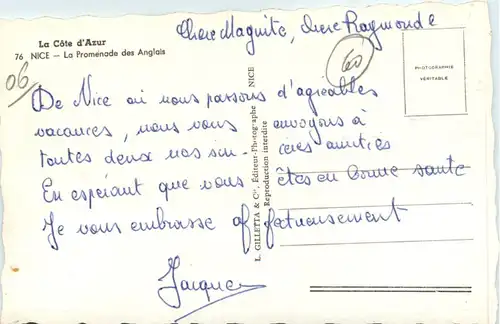 Chere Maguite, chere Raymonde
La Côte d'Azur
76 NICE — La Promenade des Anglais
06
60
PHOTOGRAPHIE
VÉRITABLE
De Nice où nous passons d'agreables
vacances, nous vous envoyons à
toutes deux nos sincères amitiés
En espérant que vous êtes en bonne santé
Je vous embrasse affectueusement
Jacques
L. GILLETTA & Cie, Éditeur-Photographe NICE
Reproduction interdite